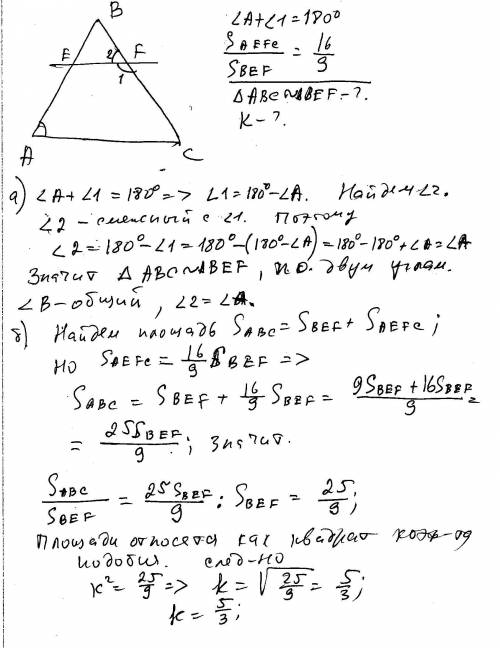 B
E
2
F
1
A
C
∠A+∠1=180°
S AEFC / S BEF = 16/9
△ABC∾△BEF-?.
K-?.
а) ∠A+∠1=180°=> ∠1=180°-∠A. Найдем ∠2.
∠2-смежный с ∠1. Поэтому
∠2=180°-∠1=180°-(180°-∠A)=180°-180°+∠A=∠A
Значит △ABC∾△BEF, по двум углам.
∠B-общий, ∠2=∠A.
б) Найдем площадь S ABC = S BEF + S AEFC;
но S AEFC = 16/9 S BEF =>
S ABC = S BEF + 16/9 S BEF = 9S BEF + 16S BEF / 9 =
= 25S BEF / 9; значит.
S ABC / S BEF = 25 S BEF / 9 : S BEF = 25/9;
Площади относятся как квадрат коэф-та
подобия. след-но
K² = 25/9 => k = √25/9 = 5/3;
k = 5/3;